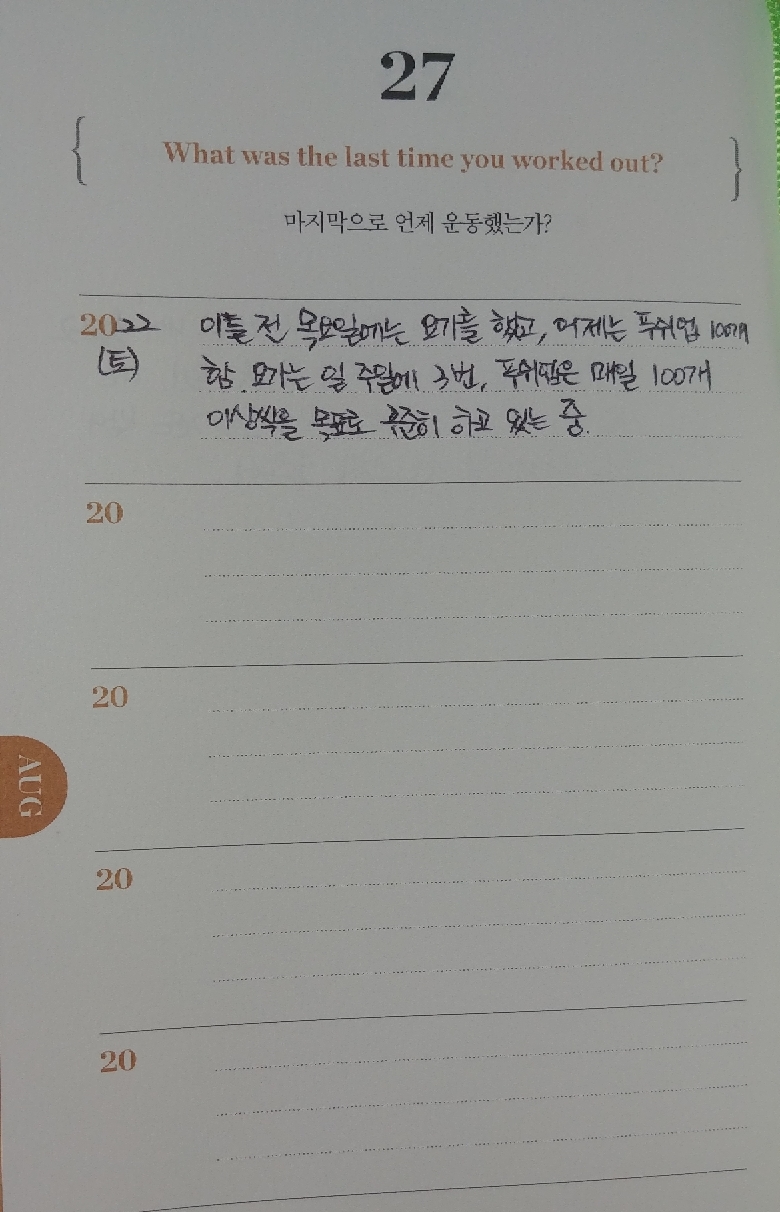 27
{ What was the last time you worked out? }
마지막으로 언제 운동했는가?
2022 이틀 전 목요일에는 요가를 했고, 어제는 푸쉬업 100개
(토) 함. 요가는 일 주일에 3번, 푸쉬업은 매일 100개
이상씩을 목표로 꾸준히 하고 있는 중.
20
20
AUG
20
20